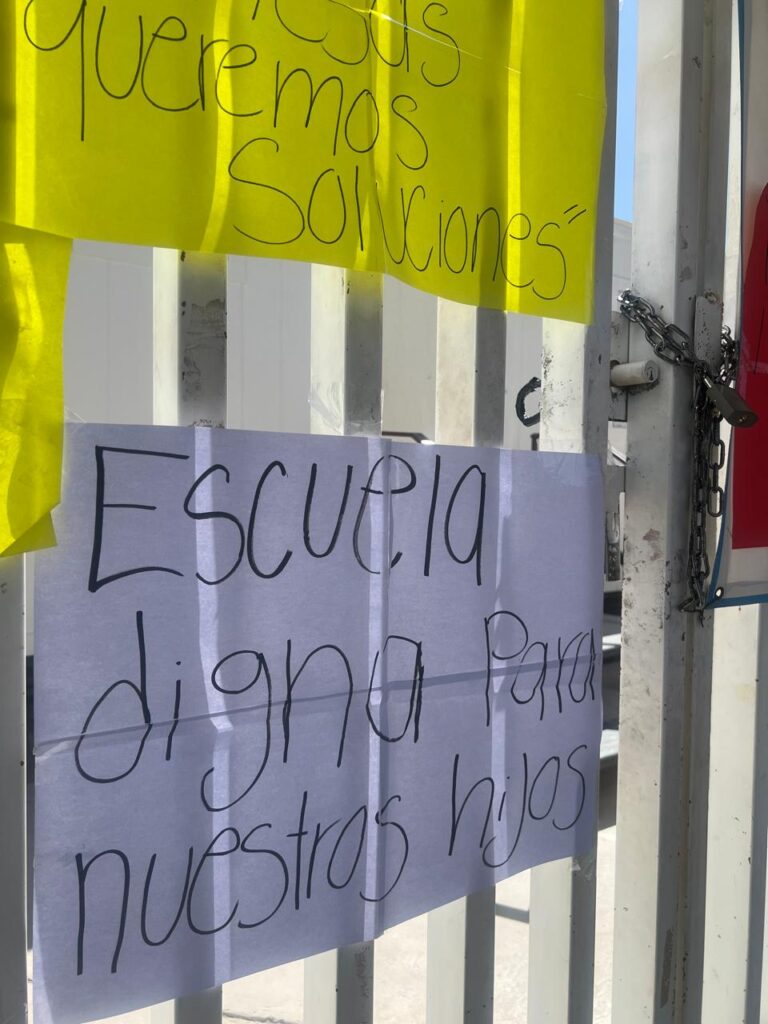 queremos
Soluciones"
Escuela
digna Para
nuestros hijos